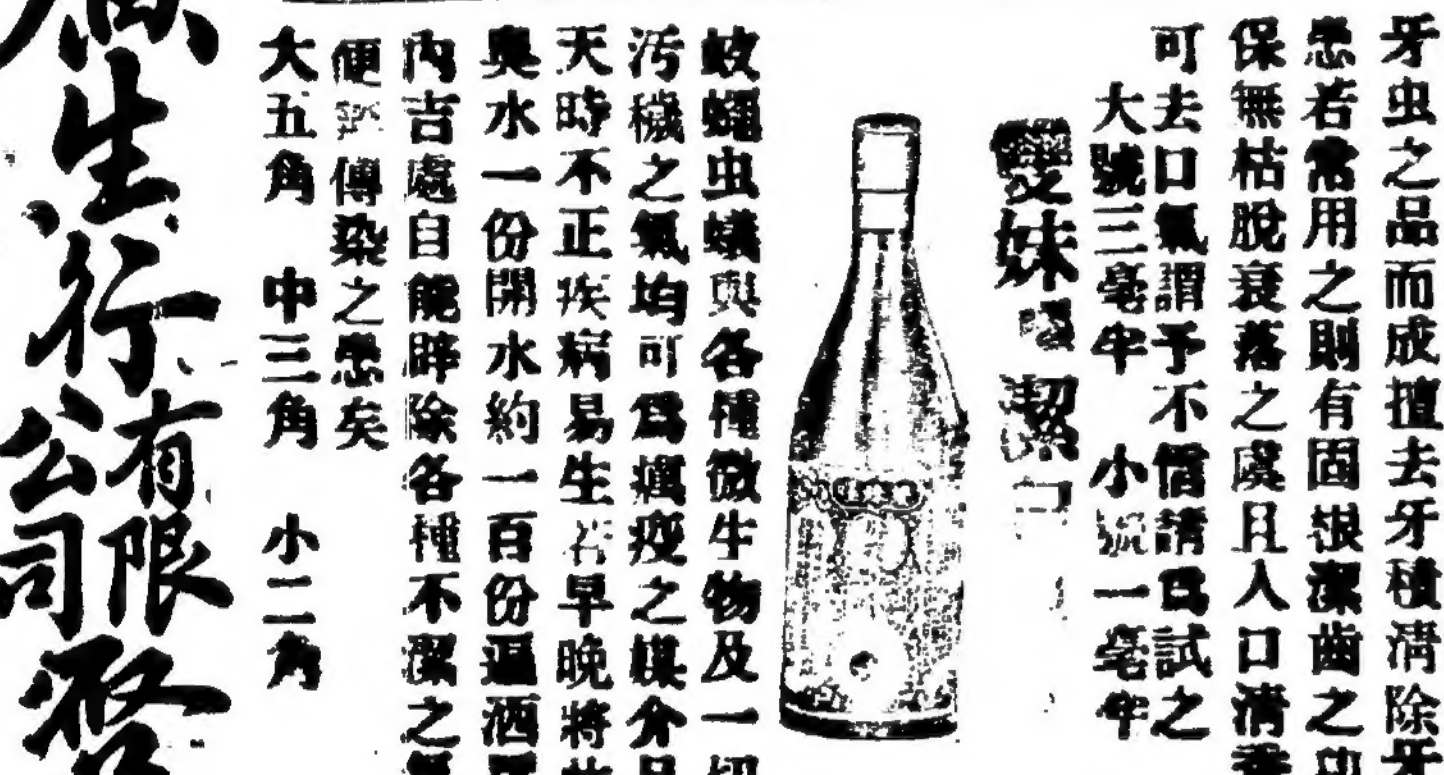 牙虫之品而成擅去牙積清除牙
患若常用之則有固根潔齒之功
保無枯脫衰落之虞且入口清香
可去口氣謂予不信請爲試之
大號三毫半 小號一毫半
雙妹 潔
蚊蠅虫蟻與各種微生物及一切
汚穢之氣均可爲瘟疫之媒介
天時不正疾病易生若早晚將此
奧水一份開水約一百份遍洒
內吉處自能辟除各種不潔之氣
便無傳染之患矣
大五角 中三角 小二角
生行有限公司啓